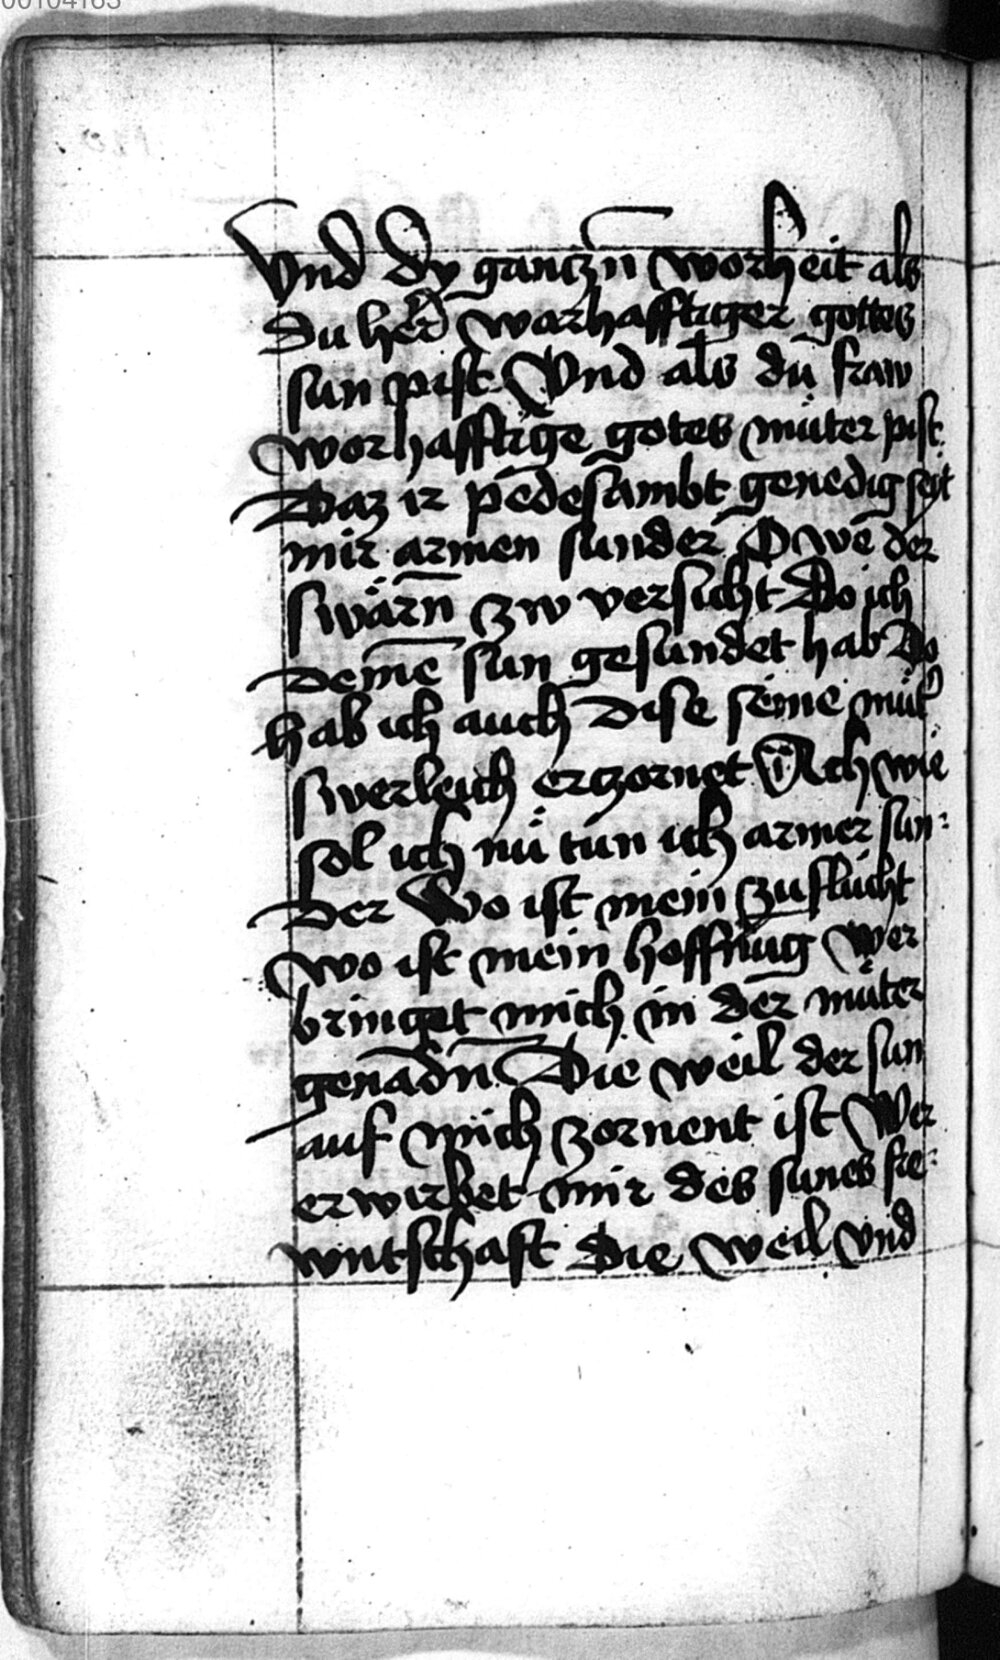 00104163
Vnd dy gantzn̄ worheit als
du her᷑ warhafftiger gottes
sun pist Vnd als du fraw
worhafftige gotes můter pist
Daz ir pedesambt genedig seyt
mir armen sunder O we der
swärn̄ zw versicht Do ich
deinē sun gesundet hab Do
hab ich auch dise seine můt᷑
swerleich erczornet Ach wie
sol ich nů tun ich armer sun-
der Wo ist mein zuflucht
wo ist mein hoffnūg Wer
bringet mich in der můter
genadn̄ Die weil der sun
auf mich zornent ist Wer
erwirbet mir des sunes fre-
wntschaft die weil vnd